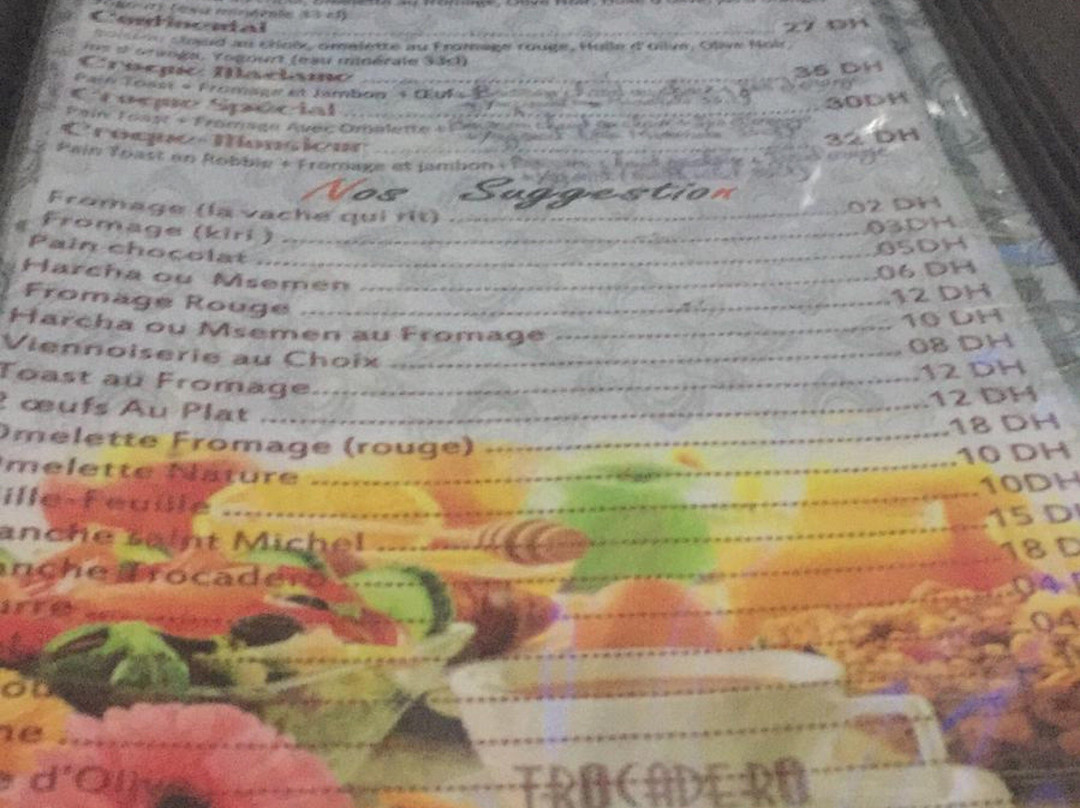 Continental 27 DH
au choix, omelette au Fromage rouge, Huile d'olive, Olive Noir,
Jus d'orange, Yogourt (eau minérale 33cl)
Croque Madame 35 DH
Pain Toast + Fromage et Jambon + Œuf
Croque Spécial 30DH
Pain Toast + Fromage Avec Omelette +
Croque Monsieur 32 DH
Pain Toast en Robbie + Fromage et jambon +
Nos Suggestion
Fromage (la vache qui rit) 02 DH
Fromage (kiri ) 03DH
Pain chocolat 05DH
Harcha ou Msemen 06 DH
Fromage Rouge 12 DH
Harcha ou Msemen au Fromage 10 DH
Viennoiserie au Choix 08 DH
Toast au Fromage 12 DH
2 œufs Au Plat 12 DH
Omelette Fromage (rouge) 18 DH
melette Nature 10 DH
ille-Feuille 10DH
anche Saint Michel 15 D
anche Trocadero 18 D
urre 04
04
ne
e d'Olive
TROCADERO